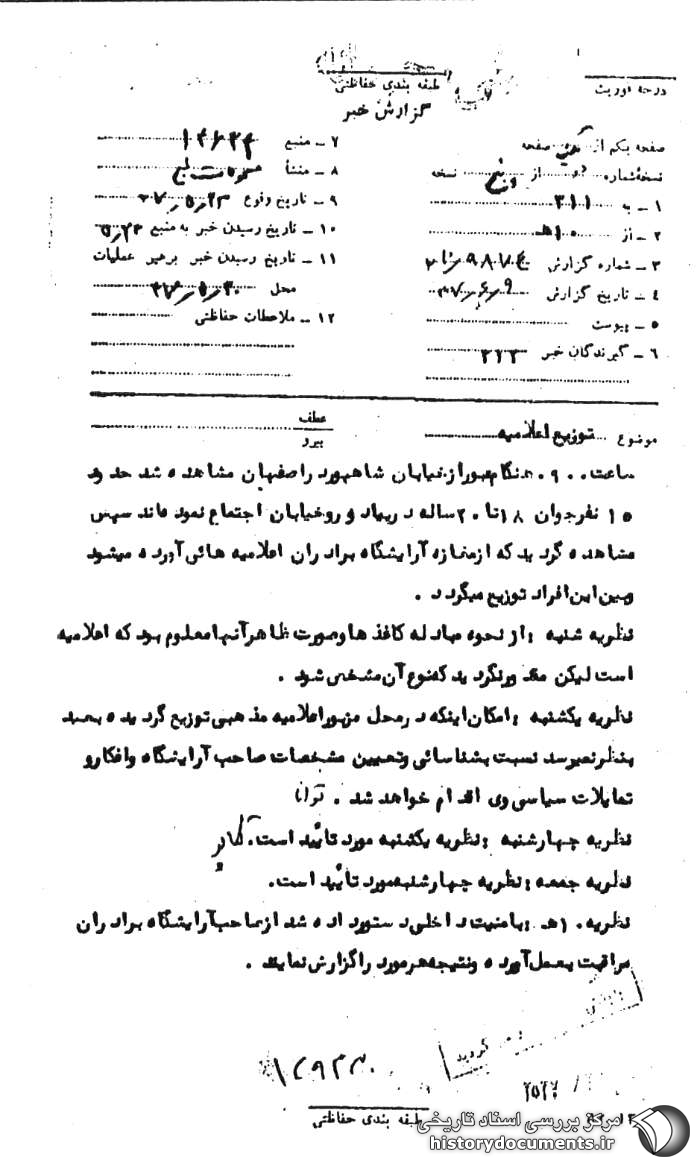 درجه فوریت
طبقه بندی حفاظتی
گزارش خبر
صفحه یکم از صفحه
نسخه شماره از نسخه
۱ - به ۳۱۱
۲ - از ۱۰هـ
۳ - شماره گزارش
۴ - تاریخ گزارش ۳۷/۶/۹
۵ - پیوست
۶ - گیرندگان خبر ۳۲۳
۷ - منبع
۸ - منشأ
۹ - تاریخ وقوع ۳۷/۵/۲۳
۱۰ - تاریخ رسیدن خبر به منبع
۱۱ - تاریخ رسیدن خبر برهبر عملیات
محل ۳۷/۵/۳۰
۱۲ - ملاحظات حفاظتی
موضوع توزیع اعلامیه
عطف
پیرو
ساعت ۰۹۰۰ هنگام عبور از خیابان شاهپور د راصفهان مشاهده شد حدود
۱۵ نفرجوان ۱۸ تا ۲۰ ساله د رپیاد ه روخیابان اجتماع نموده اند سپس
مشاهده گرد ید که ازمغازه آرایشگاه براد ران اعلامیه هائی آورد ه میشود
وبین این افراد توزیع میگرد د .
نظریه شنبه : از نحوه مباد له کاغذ ها وصورت ظاهر آنها معلوم بود که اعلامیه
است لیکن مقد ورنگرد ید که نوع آن مشخص شود .
نظریه یکشنبه : امکان اینکه د رمحل مزبور اعلامیه مذهبی توزیع گرد یده بعید
بنظر نمیرسد نسبت بشناسائی وتعیین مشخصات صاحب آرایشگاه وافکار و
تمایلات سیاسی وی اقد ام خواهد شد .
نظریه چهارشنبه : نظریه یکشنبه مورد تائید است.
نظریه جمعه : نظریه چهارشنبه مورد تائید است.
نظریه ۱۰هـ : بامنیت د اخلی د ستورد اده شد ازصاحب آرایشگاه براد ران
مراقبت بعمل آورد ه ونتیجه هرمورد راگزارش نمایند .
گردید
طبقه بندی حفاظتی
مرکز بررسی اسناد تاریخی
historydocuments.ir